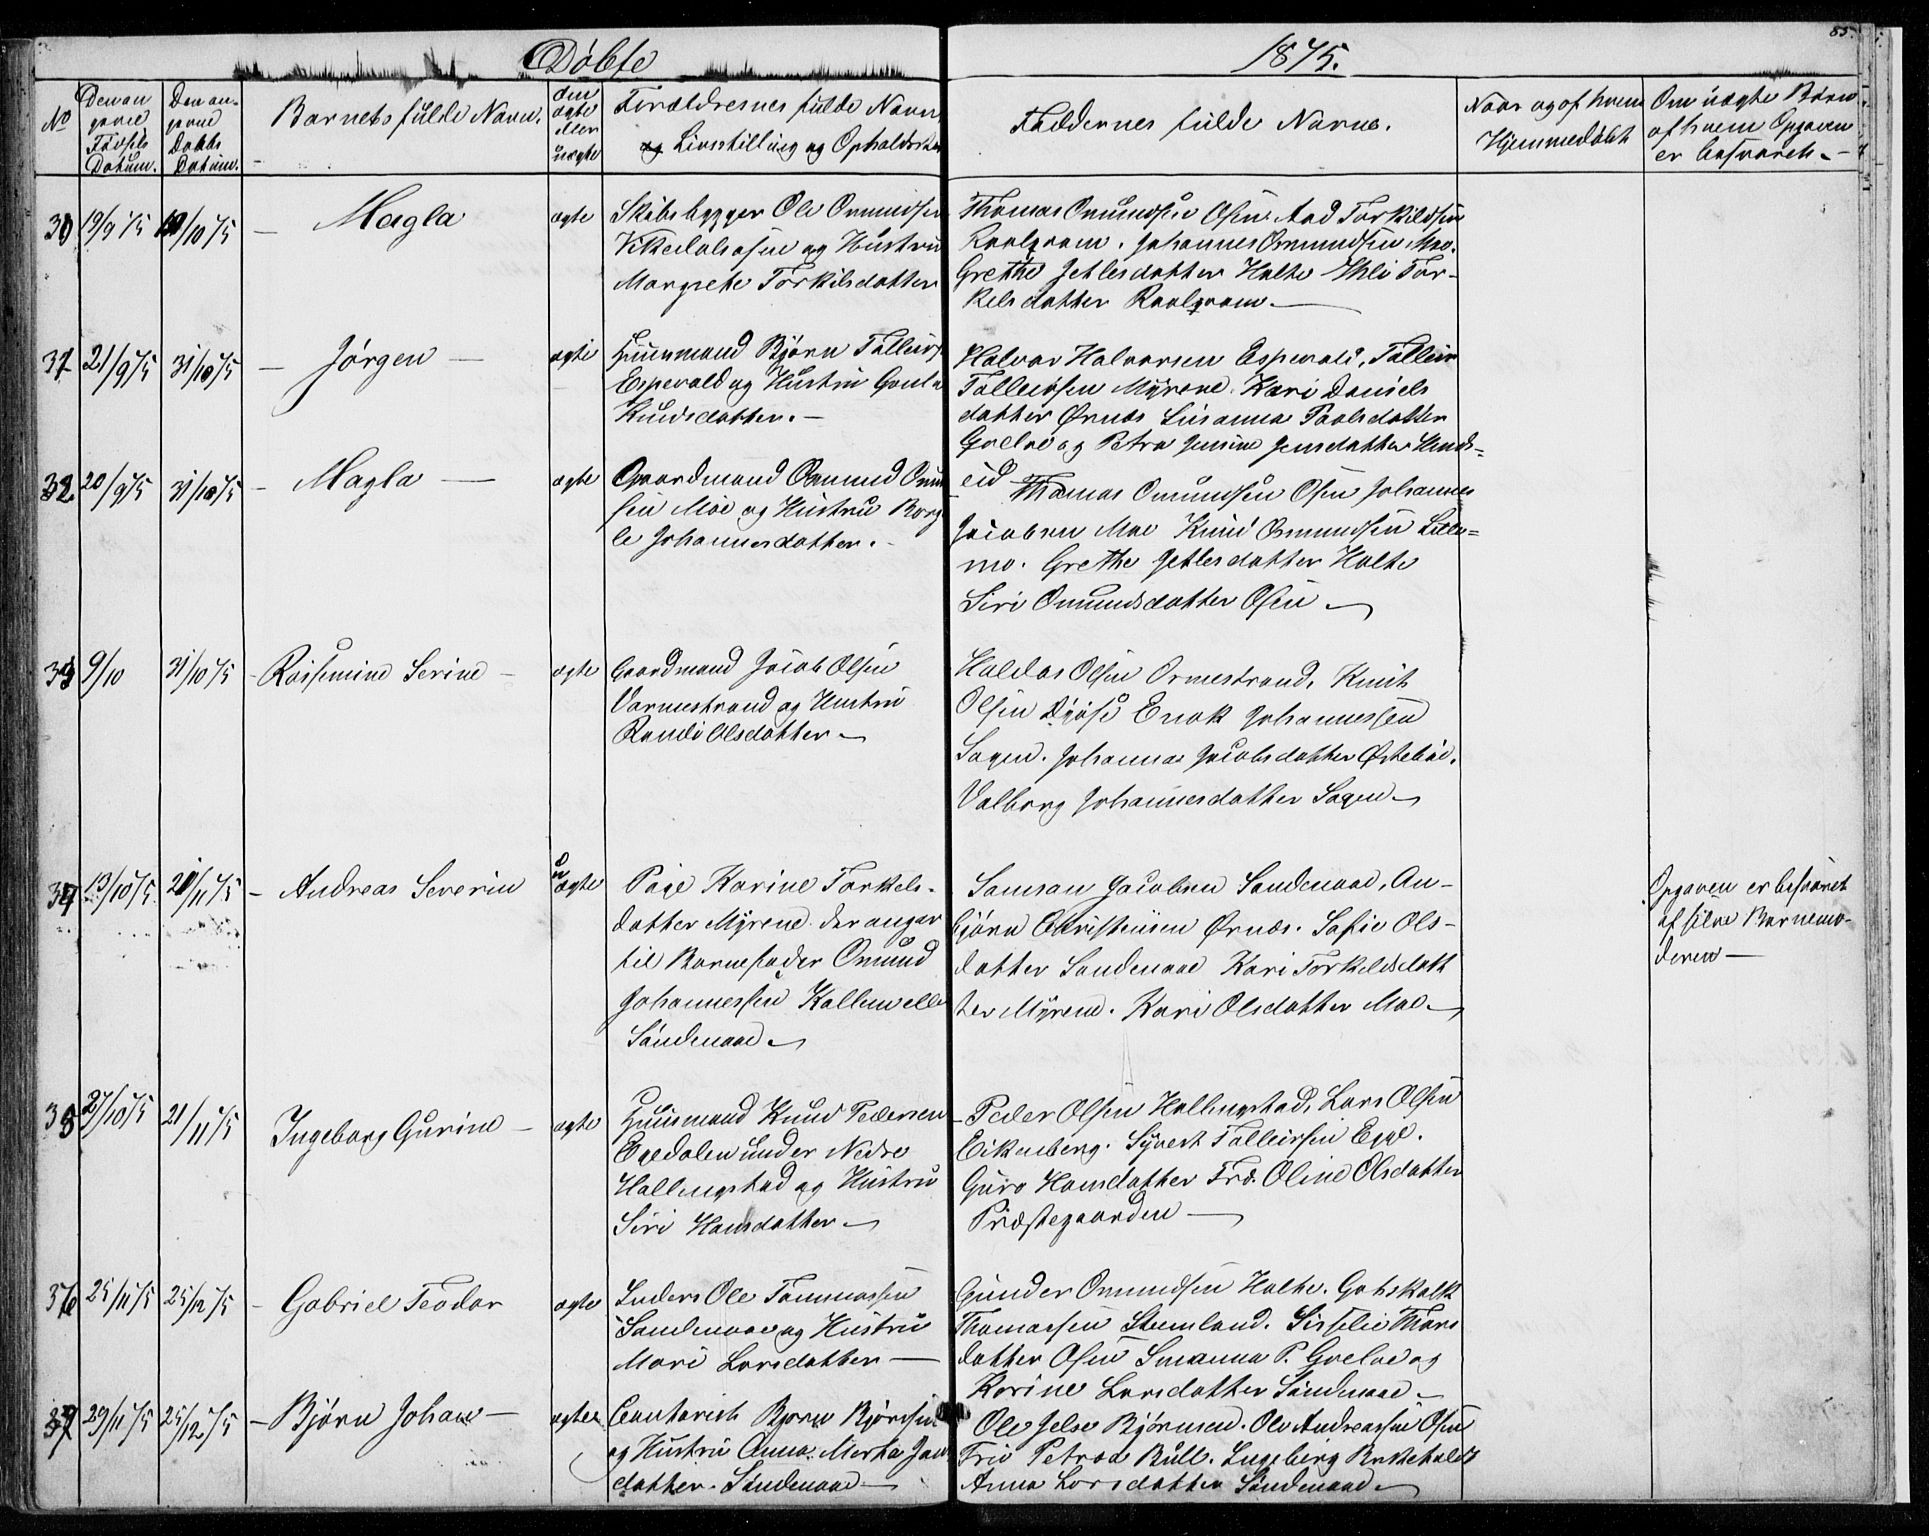 Döbte
1875.
85.
No
Den angivne Födsels Datum.
Den angivne Daabs Datum.
Barnets fulde Navn.
om ægte eller uægte
Forældrenes fulde Navn
og Livsstilling og Opholdssted
Faddernes fulde Navne.
Naar og af hvem
Hjemmedöbt
Om uægte Börn
af hvem Opgaven
er besvaret.
30 19/9 75 10/10 75 — Magla ægte
Skibsbygger Ole Omundsen
Vikedalsosen og Hustru
Margrete Torkilsdatter
Thomas Omundsen Osen. Aad Torkildsen
Johannes Omundsen Moe.
Grethe Jetlesdatter Halte Tor-
kelsdatter
31 21/9 75 31/10 75 — Jörgen — ægte
Huusmand Björn Tolleivs
Espevold og Hustru
Knudsdatter. —
Halvor Halvorsen Espevold, Tolleiv
Tolleivsen Myrene. Kari Daniels
datter Ørnæs Susanna Paalsdatter
og Petra Jensine Jensdatter Hinds-
eid
32 20/9 75 31/10 75 — Magla — ægte
Gaardmand Omund Omun
sen Moe og Hustru Borg
le Johannesdatter. —
Thomas Omundsen Osen Johannes
Jacobsen Moe Knud Omundsen Lille-
mo. Grethe Jetlesdatter Halte
Siri Omundsdatter Osen —
33 9/10 31/10 75 — Rasmine Serine — ægte
Gaardmand Jacob Olsen
Vormestrand og Hustru
Randi Olsdatter —
Haldor Olsen Ormestrand, Knut
Olsen Enok Johannessen
Sagen. Johannas Jacobsdatter Østeböe.
Valborg Johannesdatter Sagen —
34 13/10 75 21/11 75 — Andreas Severin uægte
Pige Karine Torkels-
datter Myrene der angav
til Barnefader Omund
Johannessen Kallem elle
Sandenaae —
Samson Jacobsen Sandenaae, An-
björn Christensen Ørnæs. Sofie Ols-
datter Sandenaae Kari Torkeldsdatt
ter Myrene. Kari Olsdatter Moe —
Opgaven er besvaret
af selve Barnemo-
deren —
35 27/10 75 21/11 75 Ingeborg Gurine — ægte
Huusmand Knud Pedersen
Eggedalen under Nedre
Hallingstad og Hustru
Siri Hansdatter —
Peder Olsen Hallingstad, Lars Olsen
Eikenberg. Syvert Tolleivsen Egge.
Guro Hansdatter Oline Olsdatter
Præstegaarden —
36 25/11 75 25/12 75 — Gabriel Teodor ægte
Inders Ole Tommassen
Sandenaae og Hustru
Mari Larsdatter —
Gunder Omundsen Halte. Gotskalk
Thomassen Stumland. Sisselie Thors
datter Osen Susanna P. og
Karine Larsdatter Sandenaae —
37 29/11 75 25/12 75 — Björn Johan — ægte
Björn Björnsen
og Hustru Anna Marta Jan
datter. Sandenaae —
Ole Jelse Björnsen. Ole Andreassen Osen
Petroa Bull. Ingeborg
Anna Larsdatter Sandenaae —